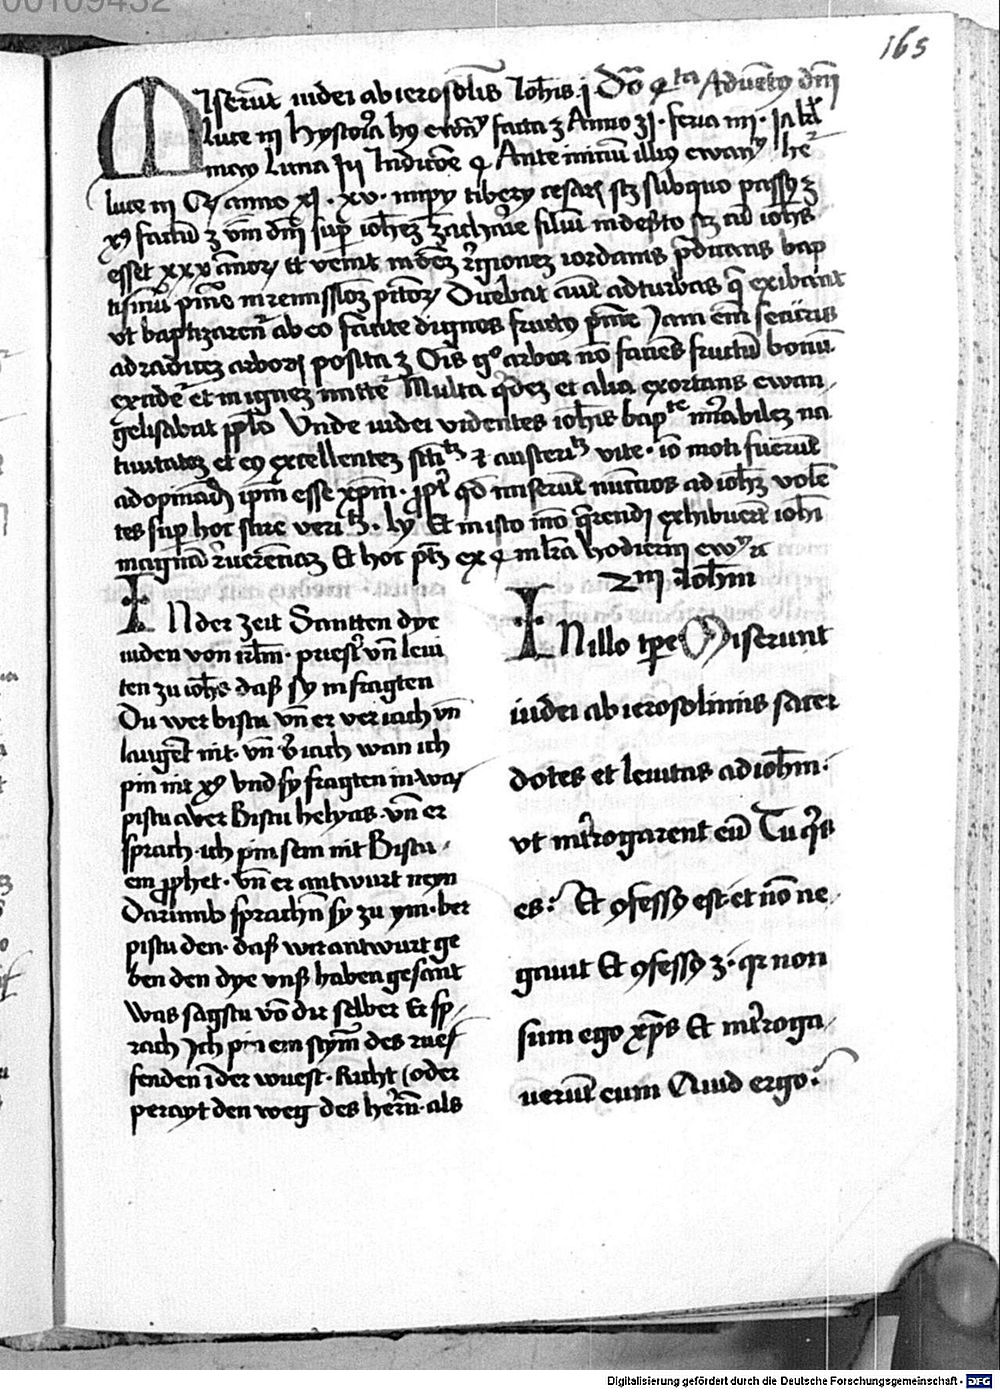 00109432
165
Miserūt iudei ab ierosolis Johis j Dō 4ta Adventꝰ dm̄
luce iij hystoria hꝰ ewāy facta ꝫ Anno 31 · feria iiij ·
may luna Indicōe 4 Ante iniciū illiꝰ ewany
luce iij anno xj · xv · impy tibery cesar scꝫ sub quo passꝰ ꝫ
xꝰ factū ꝫ vm̄ dm̄ sup ioheꝫ zacharie filiū in deserto scꝫ cū iohs
esset xxx annoꝝ et venit in oēꝫ regioneꝫ iordanis predicans bap
tismū pnīe in remissioꝫ pctoꝝ Dicebat autē ad turbas que exibant
vt baptizarent ab eo facite dignos fructꝰ pnīe Jam em̄ securis
ad radiceꝫ arboꝝ posita ꝫ Oīs gᵒ arbor nō faciēs fructū bonū
excidet et in igneꝫ mittet Multa quideꝫ et alia exortans ewan
gelisabat pplō Vnde iudei videntes iohis bapte mirabileꝫ na
tiuitateꝫ et eꝰ excellenteꝫ scitateꝫ ⁊ austeritateꝫ vite · iō moti fuerūt
ad opinādū ipm esse xpm · ppt qd miserūt nuncios ad iohꝫ volē
tes sup hoc scire veritateꝫ · ly Et in isto mō querendi exhibuerūt iohi
magnā reuerenciaꝫ Et hoc ptꝫ ex 4 in lrā hodierni ewy
2m Johm
IN der zeit Santten dye
iuden von irlm · priest vn̄ leui
ten zu iohs daß sy in fragten
Du wer bistu vn̄ er veriach vn̄
laugēt nit · vn̄ v̄iach wan ich
pin nit xꝰ vnd sy fragten in was
pistu aber Bistu helyas · vn̄ er
sprach · ich pin sein nit Bistu
ein prophet · vn̄ er antwurt neyn
Darumb sprachn̄ sy zu ym · ber
pistu den · daß wir antwurt ge
ben den dye vnß haben gesant
Was sagstu vō dir selber Et sp
rach Ich pin ein stym̄ des ruef
fenden ī der wuest · Richt (oder
perayt den weg des hern̄ · als
IN illo tpe Miserunt
iudei ab ierosolimis sacer
dotes et leuitas ad iohm̄ ·
vt int̄rogarent eū Tu qis
es · Et ꝯfessꝰ est · et nō ne
gauit Et ꝯfessꝰ ꝫ · qꝛ non
sum ego xps̄ Et int̄roga
uerūt eum Quid ergo ·
Digitalisierung gefördert durch die Deutsche Forschungsgemeinschaft - DFG